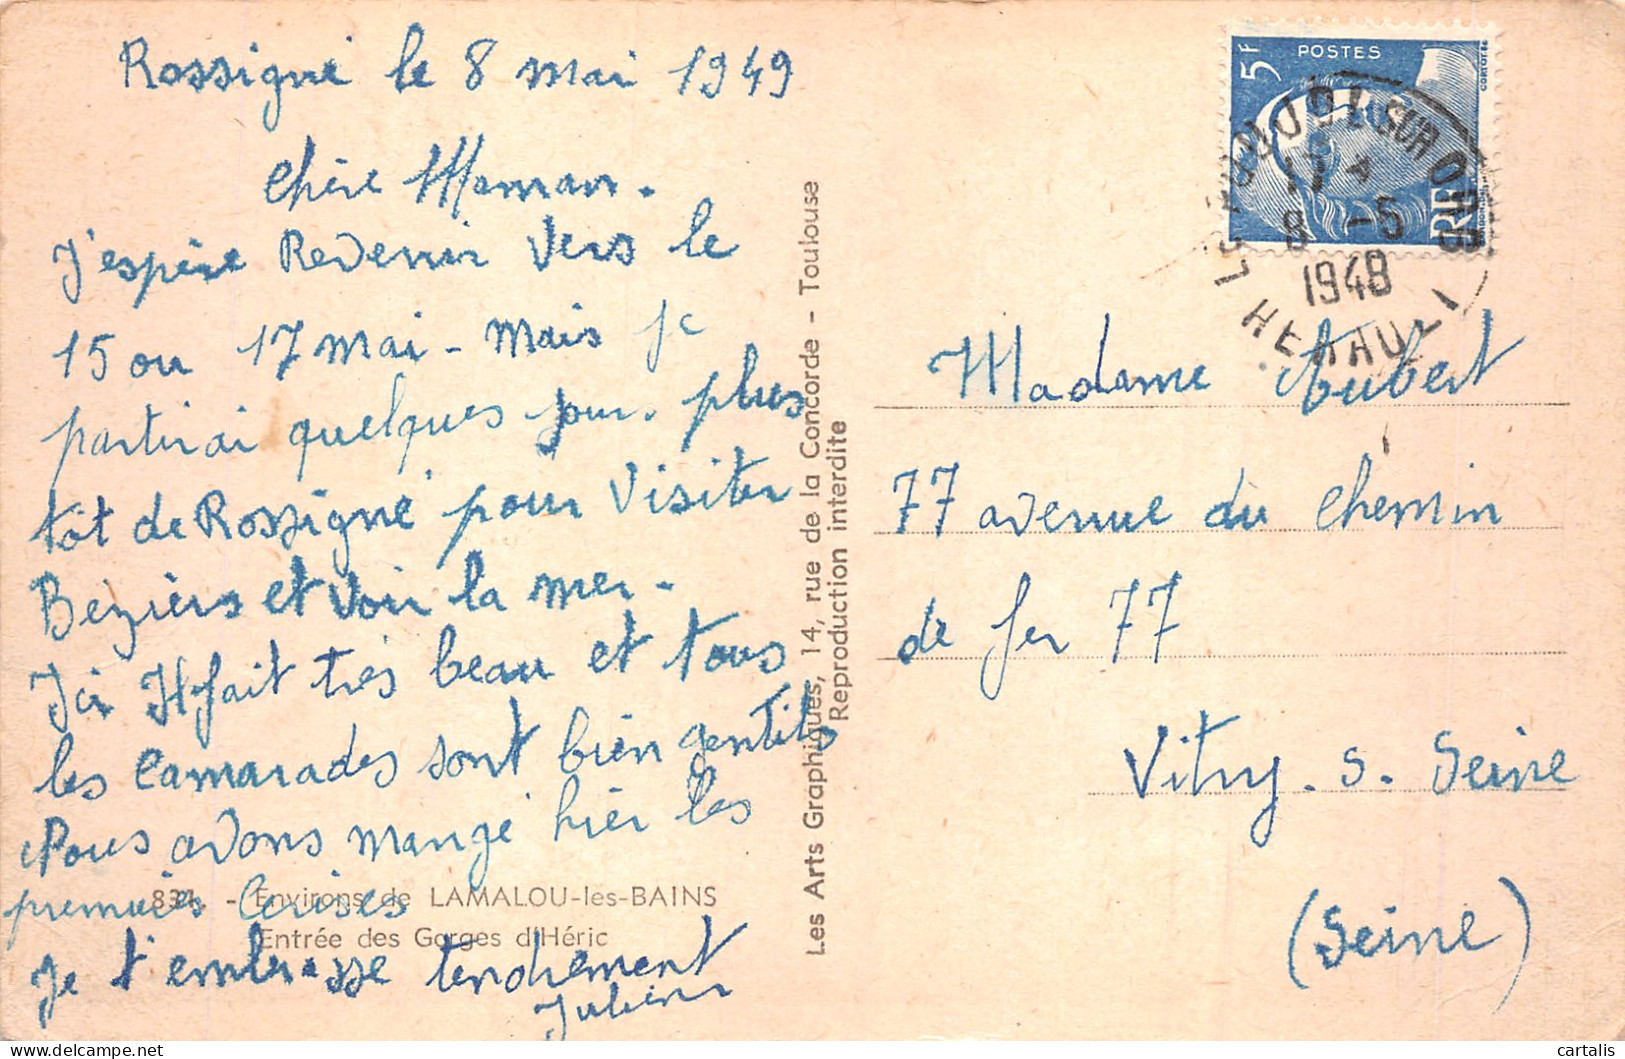 Rossigné le 8 mai 1949
Chère Maman.
J'espère Revenir Vers le
15 ou 17 mai - Mais je
partirai quelques jour. plus
tôt de Rossigné pour Visiter
Beziers et Voir la mer.
Ici Il fait très beau et tous
les Camarades sont bien gentils
Nous avons mangé hier les
premières Cerises
Je t'embrasse tendrement
Julien
834. - Environs de LAMALOU-les-BAINS
Entrée des Gorges d'Héric
Les Arts Graphiques, 14, rue de la Concorde - Toulouse
Reproduction interdite
5F POSTES
RF
17
8 -5
1948
SUR ORB
HERAULT
Madame Aubert
77 avenue du Chemin
de fer 77
Vitry. s. Seine
(Seine)
cartalis